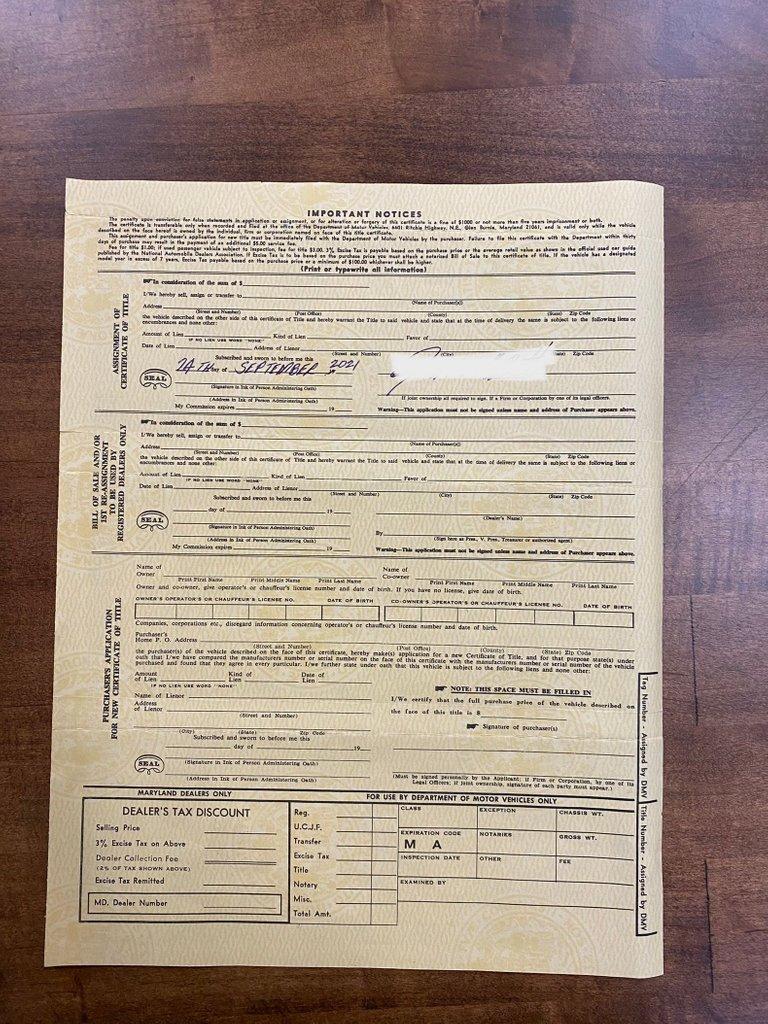 IMPORTANT NOTICES
The penalty upon conviction for false statements in application or assignment, or for alteration or forgery of this certificate is a fine of $1000 or not more than five years imprisonment or both.
The certificate is transferable only when recorded and filed at the office of the Department of Motor Vehicles, 6601 Ritchie Highway, N.E., Glen Burnie, Maryland 21061, and is valid only while the vehicle
described on the face hereof is owned by the individual, firm or corporation named on face of this title certificate.
This assignment and purchaser's application for new title must be immediately filed with the Department of Motor Vehicles by the purchaser. Failure to file this certificate with the Department within thirty
days of purchase may result in the payment of an additional $5.00 service fee.
Fee for title $1.00; if used passenger vehicle subject to inspection, fee for title $3.00. 3% Excise Tax is payable based on the purchase price or the average retail value as shown in the official used car guide
published by the National Automobile Dealers Association. If Excise Tax is to be based on the purchase price you must attach a notarized Bill of Sale to this certificate of title. If the vehicle has a designated
model year in excess of 7 years, Excise Tax payable based on the purchase price or a minimum of $100.00 whichever shall be higher.
(Print or typewrite all information)
ASSIGNMENT OF
CERTIFICATE OF TITLE
In consideration of the sum of $
I/We hereby sell, assign or transfer to
(Name of Purchaser(s))
Address
(Street and Number) (Post Office) (County) (State) Zip Code
the vehicle described on the other side of this certificate of Title and hereby warrant the Title to said vehicle and state that at the time of delivery the same is subject to the following liens or
encumbrances and none other:
Amount of Lien Kind of Lien Favor of
IF NO LIEN USE WORD "NONE"
Date of Lien Address of Lienor
(Street and Number) (City) (State) Zip Code
Subscribed and sworn to before me this
24TH day of SEPTEMBER 2021
SEAL
(Signature in Ink of Person Administering Oath)
(Address in Ink of Person Administering Oath)
If joint ownership all required to sign. If a Firm or Corporation by one of its legal officers.
My Commission expires 19
Warning—This application must not be signed unless name and address of Purchaser appears above.
BILL OF SALE AND/OR
1ST RE-ASSIGNMENT
TO BE USED BY
REGISTERED DEALERS ONLY
In consideration of the sum of $
I/We hereby sell, assign or transfer to
(Name of Purchaser(s))
Address
(Street and Number) (Post Office) (County) (State) Zip Code
the vehicle described on the other side of this certificate of Title and hereby warrant the Title to said vehicle and state that at the time of delivery the same is subject to the following liens or
encumbrances and none other:
Amount of Lien Kind of Lien Favor of
IF NO LIEN USE WORD "NONE"
Date of Lien Address of Lienor
(Street and Number) (City) (State) Zip Code
Subscribed and sworn to before me this
day of 19
(Dealer's Name)
SEAL
(Signature in Ink of Person Administering Oath)
By
(Address in Ink of Person Administering Oath) (Sign here as Pres., V. Pres., Treasurer or authorized agent)
My Commission expires 19
Warning—This application must not be signed unless name and address of Purchaser appears above.
PURCHASER'S APPLICATION
FOR NEW CERTIFICATE OF TITLE
Name of Owner
Print First Name Print Middle Name Print Last Name
Name of Co-owner
Print First Name Print Middle Name Print Last Name
Owner and co-owner, give operator's or chauffeur's license number and date of birth. If you have no license, give date of birth.
OWNER'S OPERATOR'S OR CHAUFFEUR'S LICENSE NO. DATE OF BIRTH CO-OWNER'S OPERATOR'S OR CHAUFFEUR'S LICENSE NO. DATE OF BIRTH
Companies, corporations etc., disregard information concerning operator's or chauffeur's license number and date of birth.
Purchaser's
Home P. O. Address
(Street and Number) (Post Office) (County) (State) Zip Code
the purchaser(s) of the vehicle described on the face of this certificate, hereby make(s) application for a new Certificate of Title, and for that purpose state(s) under
oath that I/we have compared the manufacturers number or serial number on the face of this certificate with the manufacturers number or serial number of the vehicle
purchased and found that they agree in every particular. I/we further state under oath that this vehicle is subject to the following liens and none other:
Amount of Lien Kind of Lien Date of Lien
IF NO LIEN USE WORD "NONE"
Name of Lienor
Address of Lienor
(Street and Number)
(City) (State) Zip Code
NOTE: THIS SPACE MUST BE FILLED IN
I/We certify that the full purchase price of the vehicle described on
the face of this title is $
Signature of purchaser(s)
Subscribed and sworn to before me this
day of 19
SEAL
(Signature in Ink of Person Administering Oath)
(Address in Ink of Person Administering Oath)
(Must be signed personally by the Applicant; if Firm or Corporation, by one of its
Legal Officers; if joint ownership, signature of each party must appear.)
Tag Number - Assigned by DMV
Title Number - Assigned by DMV
MARYLAND DEALERS ONLY
DEALER'S TAX DISCOUNT
Selling Price
3% Excise Tax on Above
Dealer Collection Fee
(2% OF TAX SHOWN ABOVE)
Excise Tax Remitted
MD. Dealer Number
FOR USE BY DEPARTMENT OF MOTOR VEHICLES ONLY
Reg.
U.C.J.F.
Transfer
Excise Tax
Title
Notary
Misc.
Total Amt.
CLASS EXCEPTION CHASSIS WT.
EXPIRATION CODE NOTARIES GROSS WT.
M A
INSPECTION DATE OTHER FEE
EXAMINED BY